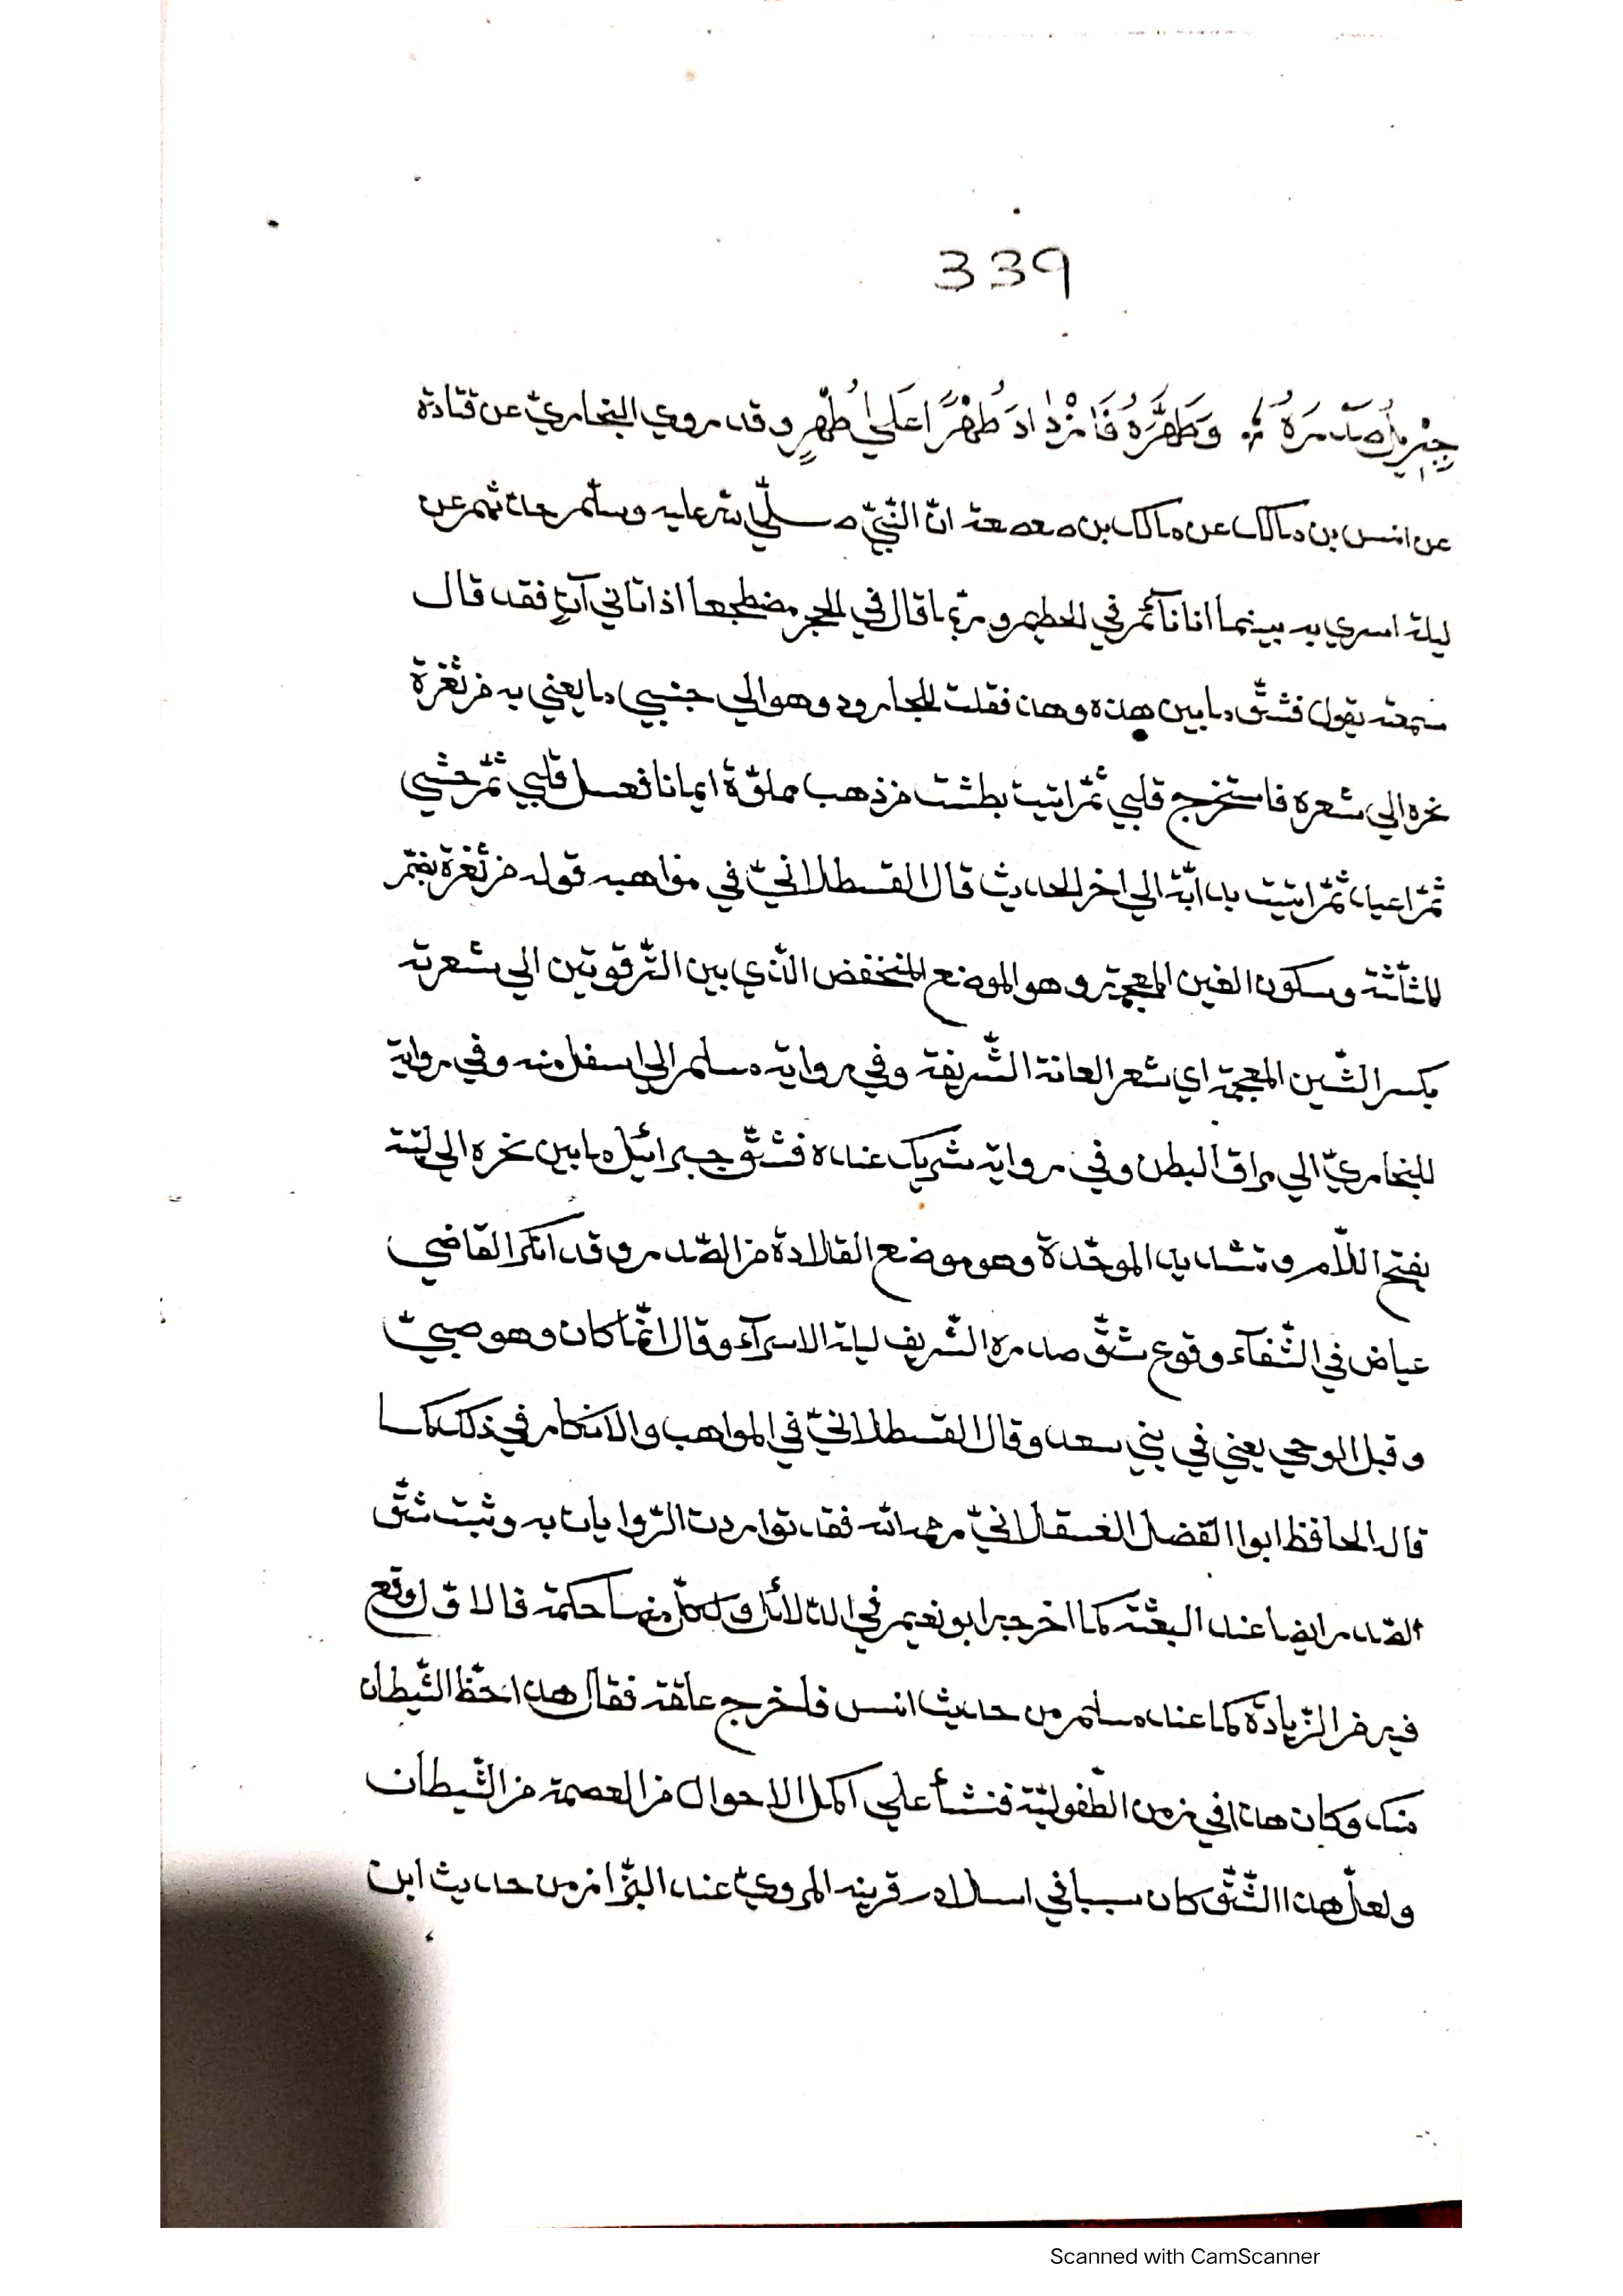 339
جِبْرِيلُ صَدْرَهُ وَطَهَّرَهُ فَازْدَادَ طُهْرًا عَلَي طُهْرٍ وقد روي البخاريّ عن قتادة
عن انس بن مالك عن مالك بن صعصعة انّ النّبيّ صلّي الله عليه وسلّم حدثهم عن
ليلة اسري به بينما انا نآئم في الحطيم وربّما قال في الحجر مضطجعا اذ اتاني آتٍ فقد قال
سمعته يقول فشقّ ما بين هذه وهذ فقلت للجارود وهو الي جنبي ما يعني به من ثغرة
نحره الي شعره فاستخرج قلبي ثمّ اتيت بطشت من ذهب مملوّة ايمانا فعسل قلبي ثمّ حشي
ثمّ اعيد ثمّ اتيت بدابّة الي اخر الحديث قال القسطلانيّ في مواهبه قوله من ثغرة بضمّ
المثلّثة وسكون الغين المعجمة وهو الموضع المنخفض الّذي بين التّرقوتين الي شعرته
بكسر الشّين المعجمة اي شعر العانة الشّريفة وفي رواية مسلم الي اسفل منه وفي رواية
للبخاريّ الي مراق البطن وفي رواية شريك عنده فشقّ جبرائيل ما بين نحره الي لبّته
بفتح اللّام وتشديد الموحّدة وهو موضع القلادة من الصّدر وقد انكر القاضي
عياض في الشّفآء وقوع شقّ صدره الشّريف ليلة الاسرآء وقال انّما كان وهو صبيّ
وقبل الوحي يعني في بني سعد وقال القسطلانيّ في المواهب والانكار في ذلك كما
قاله الحافظ ابوا الفضل العسقلانيّ رحمه الله فقد تواردت الرّوايات به وثبت شقّ
الصّدر ايضا عند البعثة كما اخرجه ابو نعيم في الدّلائل ولكلّ منهما حكمة فالاوّل وقع
فيه من الزّيادة كما عند مسلم من حديث انس فلخرج علقة فقال هذا حظّ الشّيطان
منك وكان هذا في زمن الطّفوليّة فنشأ علي آكمل الاحوال من العصمة من الشّيطان
ولعلّ هذا الشّقّ كان سببا في اسلام قرينه المرويّ عند البزّار من حديث ابن
Scanned with CamScanner